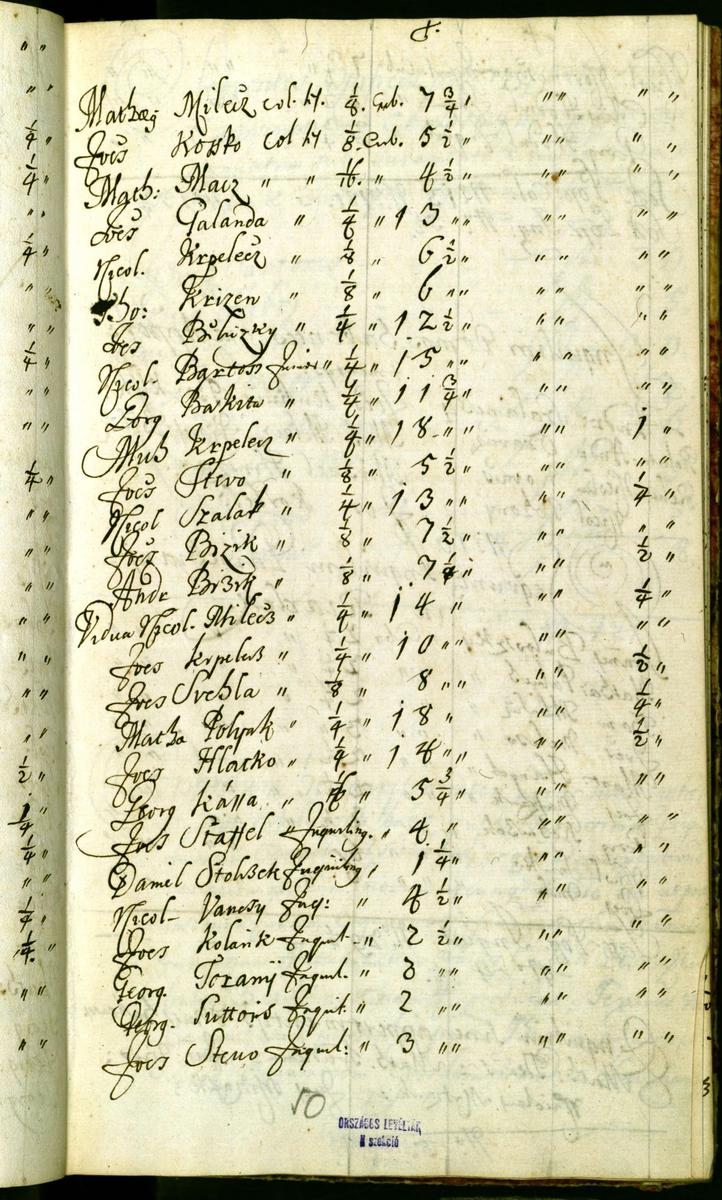 8.
Mathæg Milecz col. hj. 1/8. Cub. 7 3/4 " " " " "
Joes Kossko col hj 1/8. Cub. 5 1/2 " " " " "
Math: Macz " " 1/16. " 4 1/2 " " " " "
Joes Galanda " 1/4 " 13 " " " " " "
Nicol. Krpelecz " 1/8 6 1/2 " " " " "
Tho: Krizen " 1/8 6 " " " " " "
Joes " 1/4 " 12 1/2 " " " " "
Nicol. Bartoss Junior " 1/4 " 15 " " " " " "
Georg Bakita " 1/4 " 11 3/4 " " " " "
Mich Krpelecz " 1/4 " 18 " " " " 1 "
Joes Stevo " 1/8 5 1/2 " " " " "
Nicol Szalak " 1/4 " 13 " " " " 1/4 "
Joes Bizik " 1/8 " 7 1/2 " " " " "
Andr Bizik " 1/8 " 7 1/4 " " " 1/2 "
Vidua Nicol. Milecz " 1/4 " 14 " " " 1/4 "
Joes Krpelecz " 1/4 " 10 " " " " " "
Joes Svehla " 1/8 " 8 " " " " 1/2 "
Matha Polyak " 1/4 " 18 " " " 1/4 "
Joes Hlacko " 1/4 " 14 " " " " 1/2 "
Georg Kássa " 1/16 " 5 3/4 " " " " "
Joes Staffel " Inquiling. " 4 " " " " "
Daniel Stolszek Inquiling " 1 1/4 " " " " "
Nicol- Vancsy Inq: " 4 1/2 " " " " "
Joes Kolarik Inquil. " 2 1/2 " " " " "
Georg. Tozanij Inquil. " 3 " " " " " "
Georg. Suttoris Inquil. " 2 " " " " " "
Joes Stevo Inquil: " 3 " " " " " "
50
ORSZÁGOS LEVÉLTÁR
N szekció